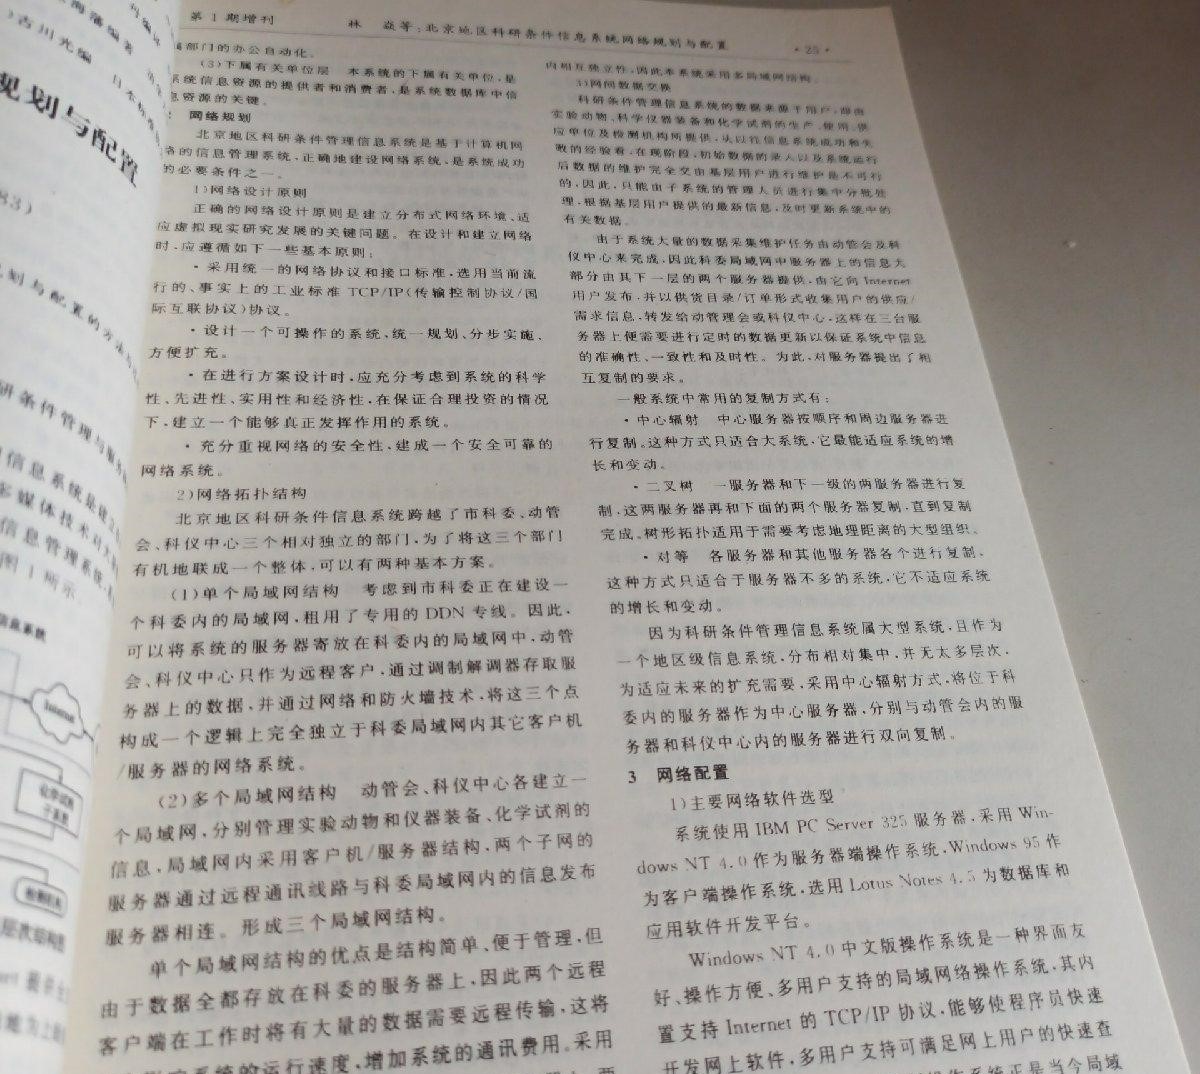 第1期增刊
林 焱等:北京地区科研条件信息系统网络规划与配置
·25·
部门的办公自动化。
(3)下属有关单位层 本系统的下属有关单位,是
系统信息资源的提供者和消费者,是系统数据库中信
息资源的关键。
网络规划
北京地区科研条件管理信息系统是基于计算机网
络的信息管理系统,正确地建设网络系统、是系统成功
的必要条件之一。
1)网络设计原则
正确的网络设计原则是建立分布式网络环境、适
应虚拟现实研究发展的关键问题。在设计和建立网络
时,应遵循如下一些基本原则:
·采用统一的网络协议和接口标准,选用当前流
行的、事实上的工业标准 TCP/IP(传输控制协议/国
际互联协议)协议。
·设计一个可操作的系统,统一规划,分步实施,
方便扩充。
·在进行方案设计时,应充分考虑到系统的科学
性、先进性、实用性和经济性,在保证合理投资的情况
下,建立一个能够真正发挥作用的系统。
·充分重视网络的安全性,建成一个安全可靠的
网络系统。
2)网络拓扑结构
北京地区科研条件信息系统跨越了市科委、动管
会、科仪中心三个相对独立的部门,为了将这三个部门
有机地联成一个整体,可以有两种基本方案。
(1)单个局域网结构 考虑到市科委正在建设一
个科委内的局域网,租用了专用的 DDN 专线。因此,
可以将系统的服务器寄放在科委内的局域网中,动管
会、科仪中心只作为远程客户,通过调制解调器存取服
务器上的数据,并通过网络和防火墙技术,将这三个点
构成一个逻辑上完全独立于科委局域网内其它客户机
/服务器的网络系统。
(2)多个局域网结构 动管会、科仪中心各建立一
个局域网,分别管理实验动物和仪器装备、化学试剂的
信息,局域网内采用客户机/服务器结构,两个子网的
服务器通过远程通讯线路与科委局域网内的信息发布
服务器相连。形成三个局域网结构。
单个局域网结构的优点是结构简单、便于管理,但
由于数据全都存放在科委的服务器上,因此两个远程
客户端在工作时将有大量的数据需要远程传输,这将
系统的运行速度,增加系统的通讯费用。采用
内相互独立性,因此本系统采用多局域网结构。
3)网间数据交换
科研条件管理信息系统的数据来源于用户,即由
实验动物、科学仪器装备和化学试剂的生产、使用、供
应单位及检测机构所提供,从以往信息系统成功和失
败的经验看,在现阶段,初始数据的录入以及系统运行
后数据的维护完全交由基层用户进行维护是不可行
的,因此,只能由子系统的管理人员进行集中分批处
理,根据基层用户提供的最新信息,及时更新系统中的
有关数据。
由于系统大量的数据采集维护任务由动管会及科
仪中心来完成,因此科委局域网中服务器上的信息大
部分由其下一层的两个服务器提供,由它向 Internet
用户发布,并以供货目录/订单形式收集用户的供应/
需求信息,转发给动管理会或科仪中心,这样在三台服
务器上便需要进行定时的数据更新以保证系统中信息
的准确性、一致性和及时性。为此,对服务器提出了相
互复制的要求。
一般系统中常用的复制方式有:
·中心辐射 中心服务器按顺序和周边服务器进
行复制。这种方式只适合大系统,它最能适应系统的增
长和变动。
·二叉树 一服务器和下一级的两服务器进行复
制,这两服务器再和下面的两个服务器复制,直到复制
完成。树形拓扑适用于需要考虑地理距离的大型组织。
·对等 各服务器和其他服务器各个进行复制。
这种方式只适合于服务器不多的系统,它不适应系统
的增长和变动。
因为科研条件管理信息系统属大型系统,且作为
一个地区级信息系统,分布相对集中,并无太多层次,
为适应未来的扩充需要,采用中心辐射方式,将位于科
委内的服务器作为中心服务器,分别与动管会内的服
务器和科仪中心内的服务器进行双向复制。
3 网络配置
1)主要网络软件选型
系统使用 IBM PC Server 325 服务器,采用 Win-
dows NT 4.0作为服务器端操作系统,Windows 95 作
为客户端操作系统,选用 Lotus Notes 4.5 为数据库和
应用软件开发平台。
Windows NT 4.0 中文版操作系统是一种界面友
好、操作方便、多用户支持的局域网络操作系统,其内
置支持 Internet 的 TCP/IP 协议,能够使程序员快速
开发网上软件,多用户支持可满足网上用户的快速查
操作系统正是当今局域
规划与配置
83)
划与配置的方
研条件管理与服
信息系统是建
多媒体技术
信息管理系统
图1所示
Internet
化学试剂
子系统
层次结构图